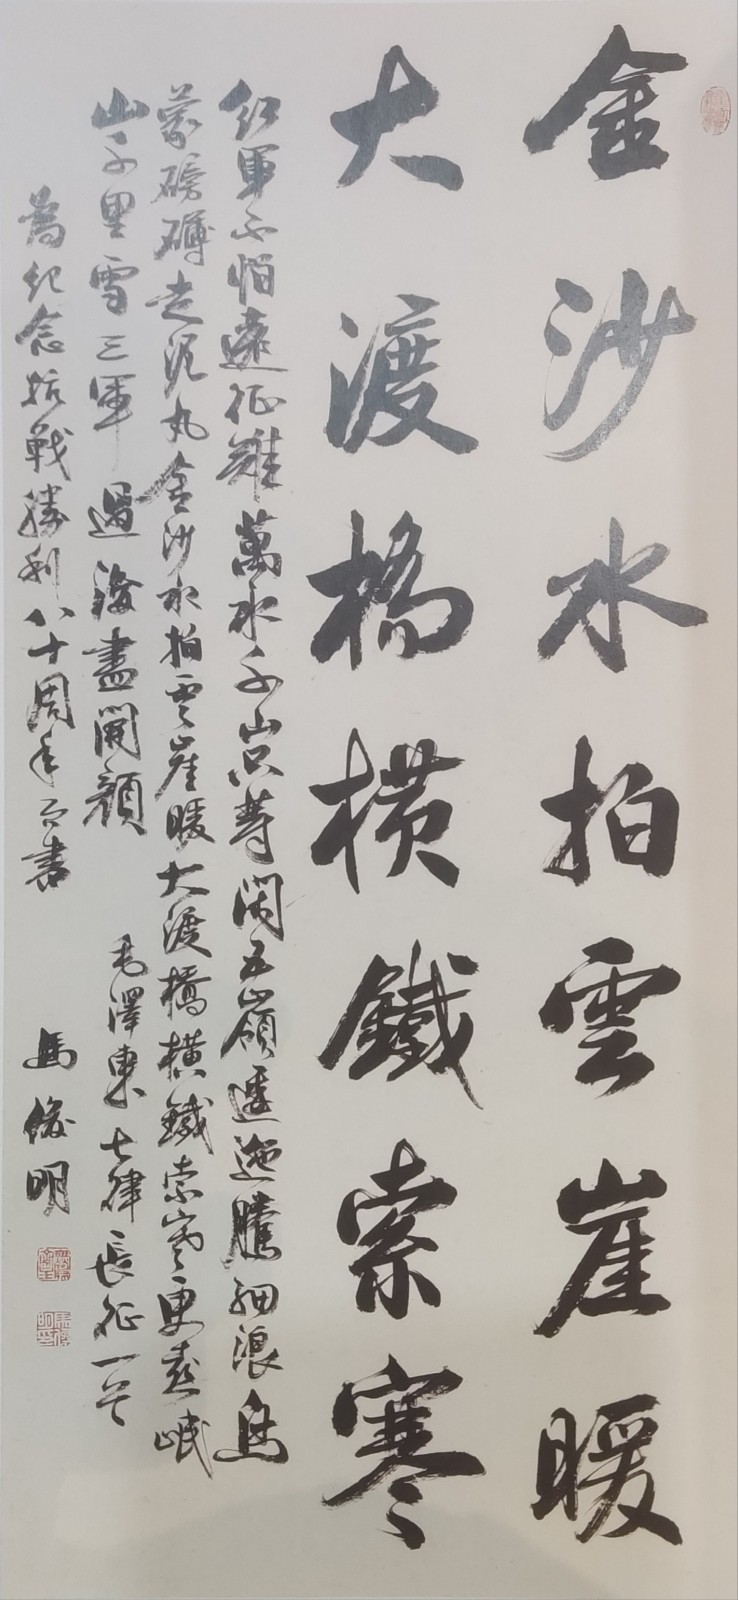 金沙水拍雲崖暖
大渡橋橫鐵索寒
紅軍不怕遠征難萬水千山只等閑五嶺逶迤騰細浪烏
蒙磅礴走泥丸金沙水拍雲崖暖大渡橋橫鐵索寒更喜岷
山千里雪三軍過後盡開顏 毛澤東七律長征一首
為紀念抗戰勝利八十周年而書 馬俊明